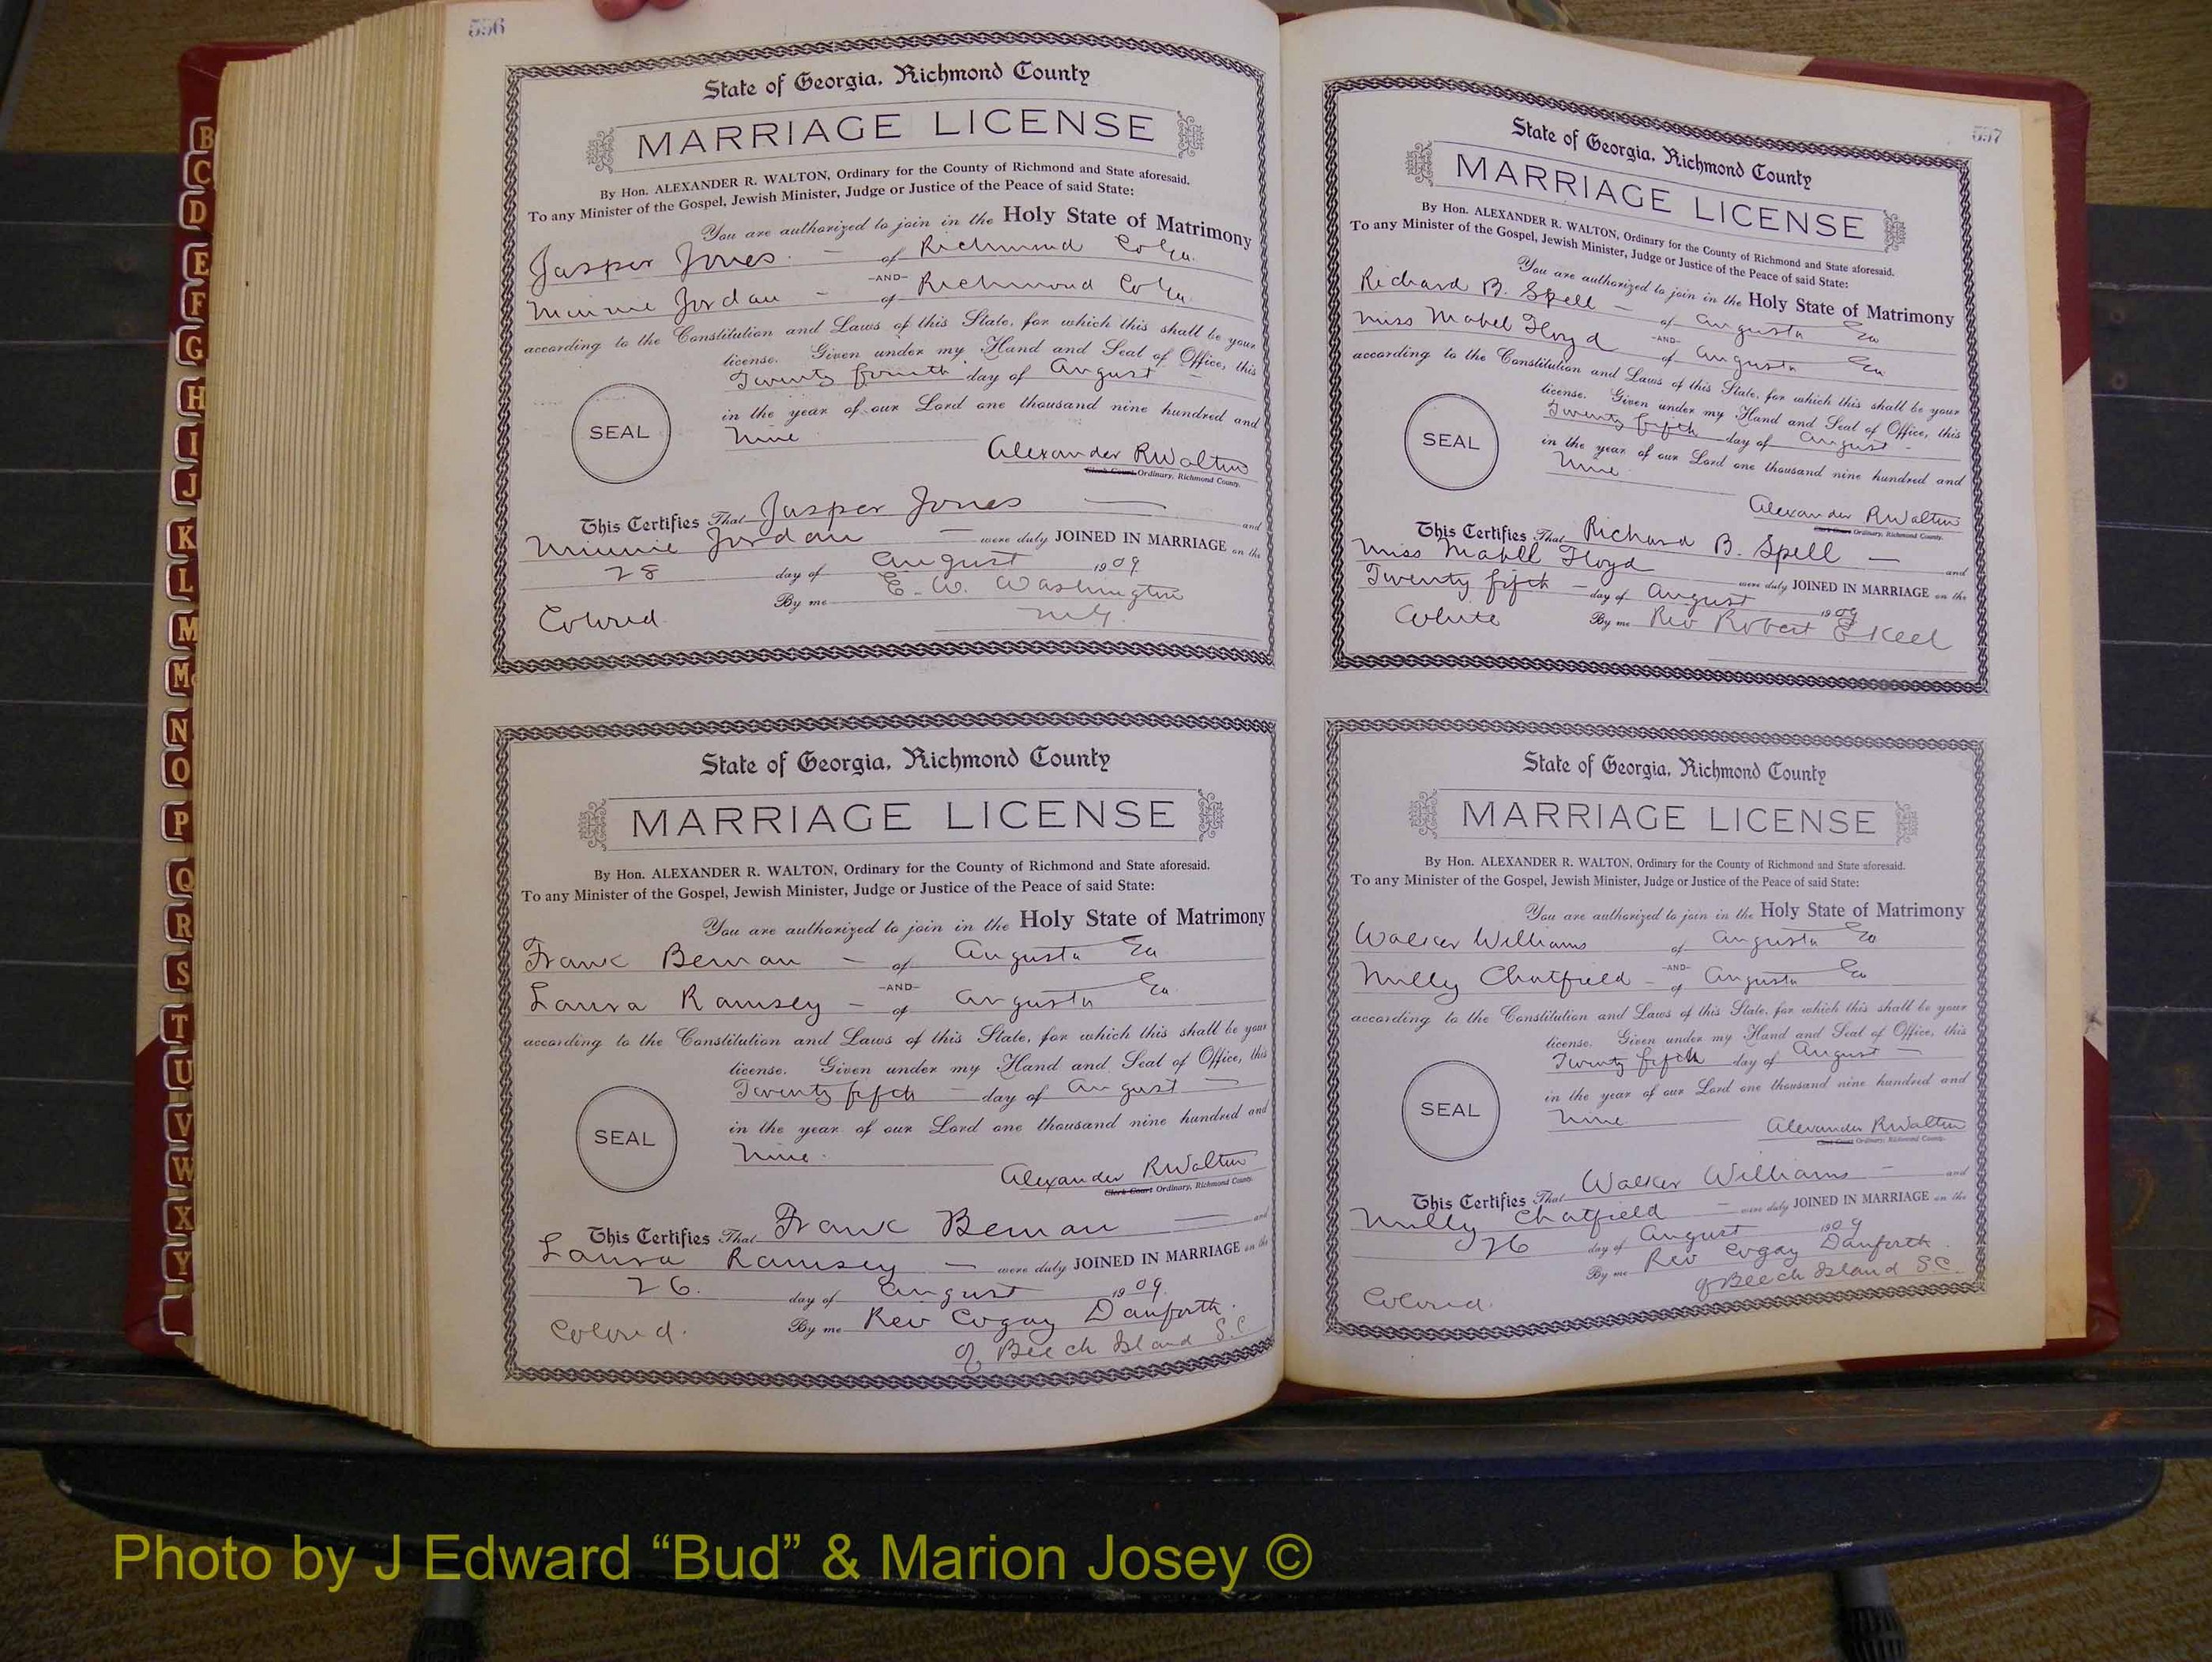 556
State of Georgia, Richmond County
MARRIAGE LICENSE
By Hon. ALEXANDER R. WALTON, Ordinary for the County of Richmond and State aforesaid.
To any Minister of the Gospel, Jewish Minister, Judge or Justice of the Peace of said State:
You are authorized to join in the Holy State of Matrimony
Jasper Jones — of Richmond Co Ga.
-AND-
Minnie Jordan — of Richmond Co Ga
according to the Constitution and Laws of this State, for which this shall be your
license. Given under my Hand and Seal of Office, this
Twenty fourth day of August —
in the year of our Lord one thousand nine hundred and
SEAL
Nine
Alexander R Walton
Clerk Court Ordinary, Richmond County.
This Certifies That Jasper Jones — and
Minnie Jordan — were duly JOINED IN MARRIAGE on the
28 day of August 1909
By me E. W. Washington
Colored M.G.
State of Georgia, Richmond County
MARRIAGE LICENSE
By Hon. ALEXANDER R. WALTON, Ordinary for the County of Richmond and State aforesaid.
To any Minister of the Gospel, Jewish Minister, Judge or Justice of the Peace of said State:
You are authorized to join in the Holy State of Matrimony
Frank Beman — of Augusta Ga
-AND-
Laura Ramsey — of Augusta Ga
according to the Constitution and Laws of this State, for which this shall be your
license. Given under my Hand and Seal of Office, this
Twenty fifth — day of August —
in the year of our Lord one thousand nine hundred and
SEAL
Nine
Alexander R Walton
Clerk Court Ordinary, Richmond County.
This Certifies That Frank Beman — and
Laura Ramsey — were duly JOINED IN MARRIAGE on the
26. day of August 1909.
Colored. By me Rev Cogay Danforth.
of Beech Island S.C
557
State of Georgia, Richmond County
MARRIAGE LICENSE
By Hon. ALEXANDER R. WALTON, Ordinary for the County of Richmond and State aforesaid.
To any Minister of the Gospel, Jewish Minister, Judge or Justice of the Peace of said State:
You are authorized to join in the Holy State of Matrimony
Richard B. Spell — of Augusta Ga
-AND-
Miss Mabel Floyd of Augusta Ga
according to the Constitution and Laws of this State, for which this shall be your
license. Given under my Hand and Seal of Office, this
Twenty fifth day of August -
in the year of our Lord one thousand nine hundred and
SEAL
Nine
Alexander R Walton
Clerk Court Ordinary, Richmond County.
This Certifies That Richard B. Spell — and
Miss Mabell Floyd were duly JOINED IN MARRIAGE on the
Twenty fifth — day of August 1909
White By me Rev Robert E Keel
State of Georgia, Richmond County
MARRIAGE LICENSE
By Hon. ALEXANDER R. WALTON, Ordinary for the County of Richmond and State aforesaid.
To any Minister of the Gospel, Jewish Minister, Judge or Justice of the Peace of said State:
You are authorized to join in the Holy State of Matrimony
Walker Williams of Augusta Ga
-AND-
Milly Chatfield — of Augusta Ga
according to the Constitution and Laws of this State, for which this shall be your
license. Given under my Hand and Seal of Office, this
Twenty fifth day of August —
in the year of our Lord one thousand nine hundred and
SEAL
Nine
Alexander R Walton
Clerk Court Ordinary, Richmond County.
This Certifies That Walker Williams — and
Milly Chatfield — were duly JOINED IN MARRIAGE on the
26 day of August 1909
By me Rev Cogay Danforth.
Colored. of Beech Island S.C.
B
C
D
E
F
G
H
I
J
K
L
M
Mc
N
O
P
Q
R
S
T
U
V
W
X
Y
Photo by J Edward “Bud” & Marion Josey ©